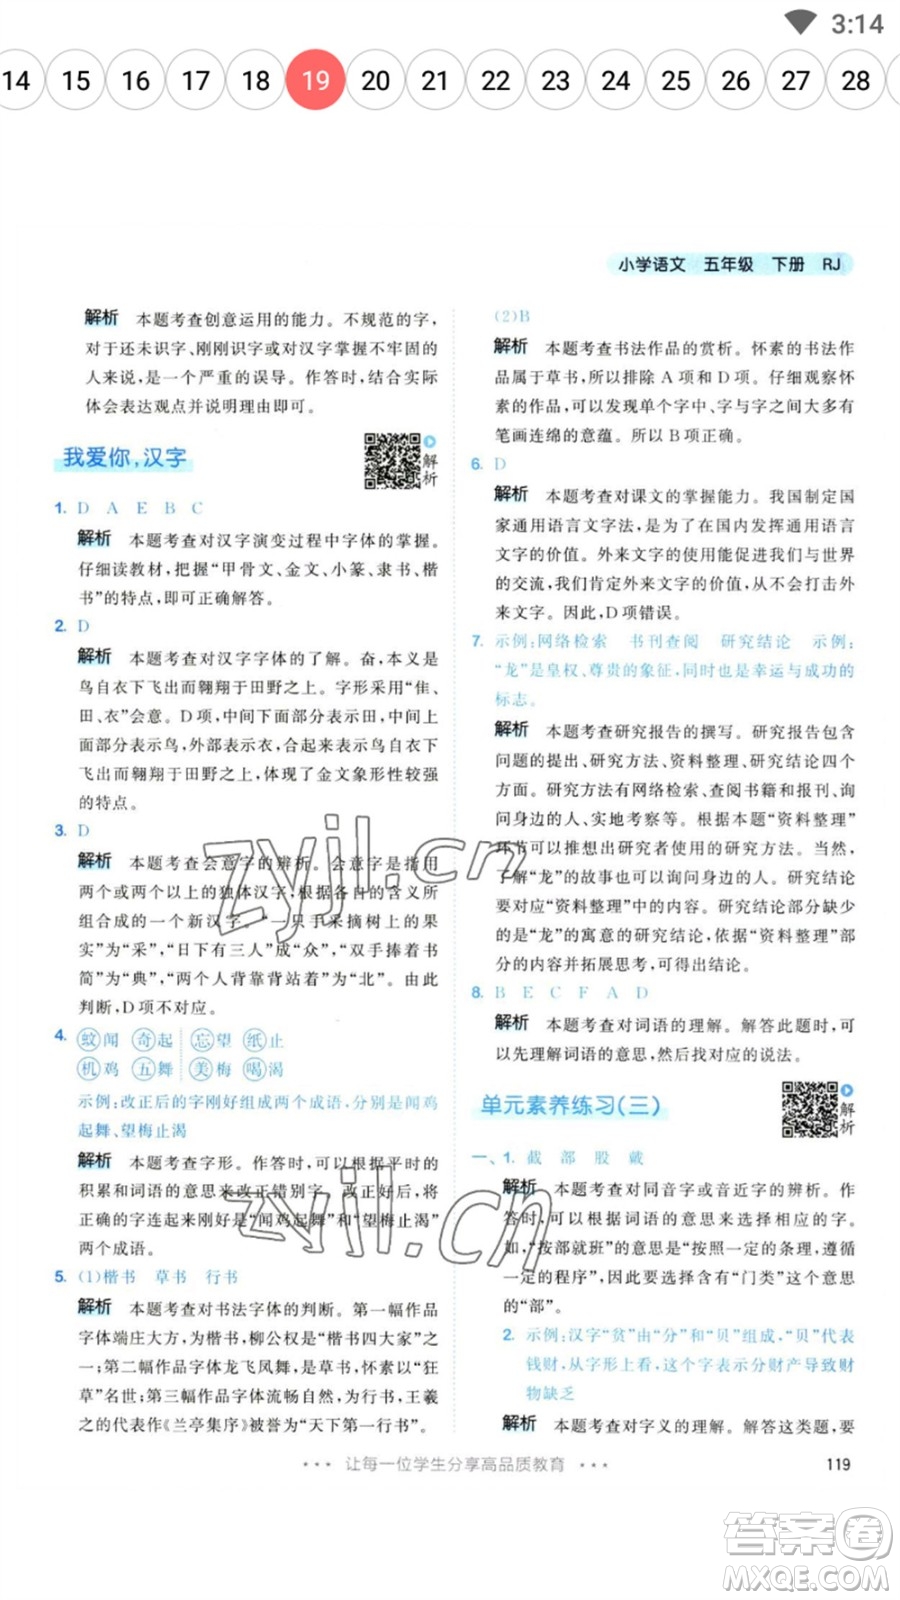 3:14
14 15 16 17 18 19 20 21 22 23 24 25 26 27 28
小学语文 五年级 下册 RJ
解析 本题考查创意运用的能力。不规范的字,
对于还未识字、刚刚识字或对汉字掌握不牢固的
人来说,是一个严重的误导。作答时,结合实际
体会表达观点并说明理由即可。
我爱你,汉字
解析
1. D A E B C
解析 本题考查对汉字演变过程中字体的掌握。
仔细读教材,把握“甲骨文、金文、小篆、隶书、楷
书”的特点,即可正确解答。
2. D
解析 本题考查对汉字字体的了解。奋,本义是
鸟自衣下飞出而翱翔于田野之上。字形采用“隹、
田、衣”会意。D项,中间下面部分表示田,中间上
面部分表示鸟,外部表示衣,合起来就表示鸟从衣
下飞出而翱翔于田野之上,体现了金文象形性较强
的特点。
3. D
解析 本题考查会意字的辨析。会意字是指用
两个或两个以上的独体汉字,根据各自的含义所
组合成的一个新汉字。“一只手采摘树上的果
实”为“采”,“日下有三人”成“众”,“双手捧着书
简”为“典”,“两个人背靠背站着”为“北”。由此
判断,D项不对应。
4. 蚊闻 奇起 忘望 纸止
机鸡 五舞 美梅 喝渴
示例:改正后的字刚好组成两个成语,分别是闻鸡
起舞、望梅止渴
解析 本题考查字形。作答时,可以根据平时的
积累和词语的意思来改正错别字。改正后,将改
正确的字连起来刚好是“闻鸡起舞”和“望梅止渴”
两个成语。
5. (1)楷书 草书 行书
解析 本题考查对书法字体的判断。第一幅作品
字体端庄大方,为楷书,柳公权是“楷书四大家”之
一;第二幅作品字体龙飞凤舞,是草书,怀素以“狂
草”名世;第三幅作品字体流畅自然,为行书,王羲
之的代表作《兰亭集序》被誉为“天下第一行书”。
(2)B
解析 本题考查书法作品的赏析。怀素的书法作
品属于草书,所以排除A项和D项。仔细观察怀
素的作品,可以发现单个字中、字与字之间大多有
笔画连绵的意蕴。所以B项正确。
6. D
解析 本题考查对课文的掌握能力。我国制定国
家通用语言文字法,是为了在国内发挥通用语言
文字的价值。外来文字的使用能促进我们与世界
的交流,我们肯定外来文字的价值,从不会打击外
来文字。因此,D项错误。
7. 示例:网络检索 书刊查阅 研究结论 示例:
“龙”是皇权、尊贵的象征,同时也是幸运与成功的
标志。
解析 本题考查研究报告的撰写。研究报告包含
问题的提出、研究方法、资料整理、研究结论四个
方面。研究方法有网络检索、查阅书籍和报刊、询
问身边的人、实地考察等。根据本题“资料整理”
环节可以推出研究者使用的研究方法。当然,
了解“龙”的故事也可以询问身边的人。研究结论
要对应“资料整理”中的内容。研究结论部分缺少
的是“龙”的寓意的研究结论,依据“资料整理”部
分的内容并拓展思考,可得出结论。
8. B E C F A D
解析 本题考查对词语的理解。解答此题时,可
以先理解词语的意思,然后找出对应的说法。
单元素养练习(三)
解析
一、1. 截 部 股 戴
解析 本题考查对同音字或音近字的辨析。作
答时,可以根据词语的意思来选择相应的字。
如,“按部就班”的意思是“按照一定的条理,遵循
一定的程序”,因此应该选含有“门类”这个意思
的“部”。
2. 示例:汉字“贫”由“分”和“贝”组成,“贝”代表
钱财,从字形上看,这个字表示分财产导致财
物缺乏
解析 本题考查对字义的理解。解答这类题,要
让每一位学生分享高品质教育
119
zyjl.cn
zyjl.cn
答案卷
MXQE.COM